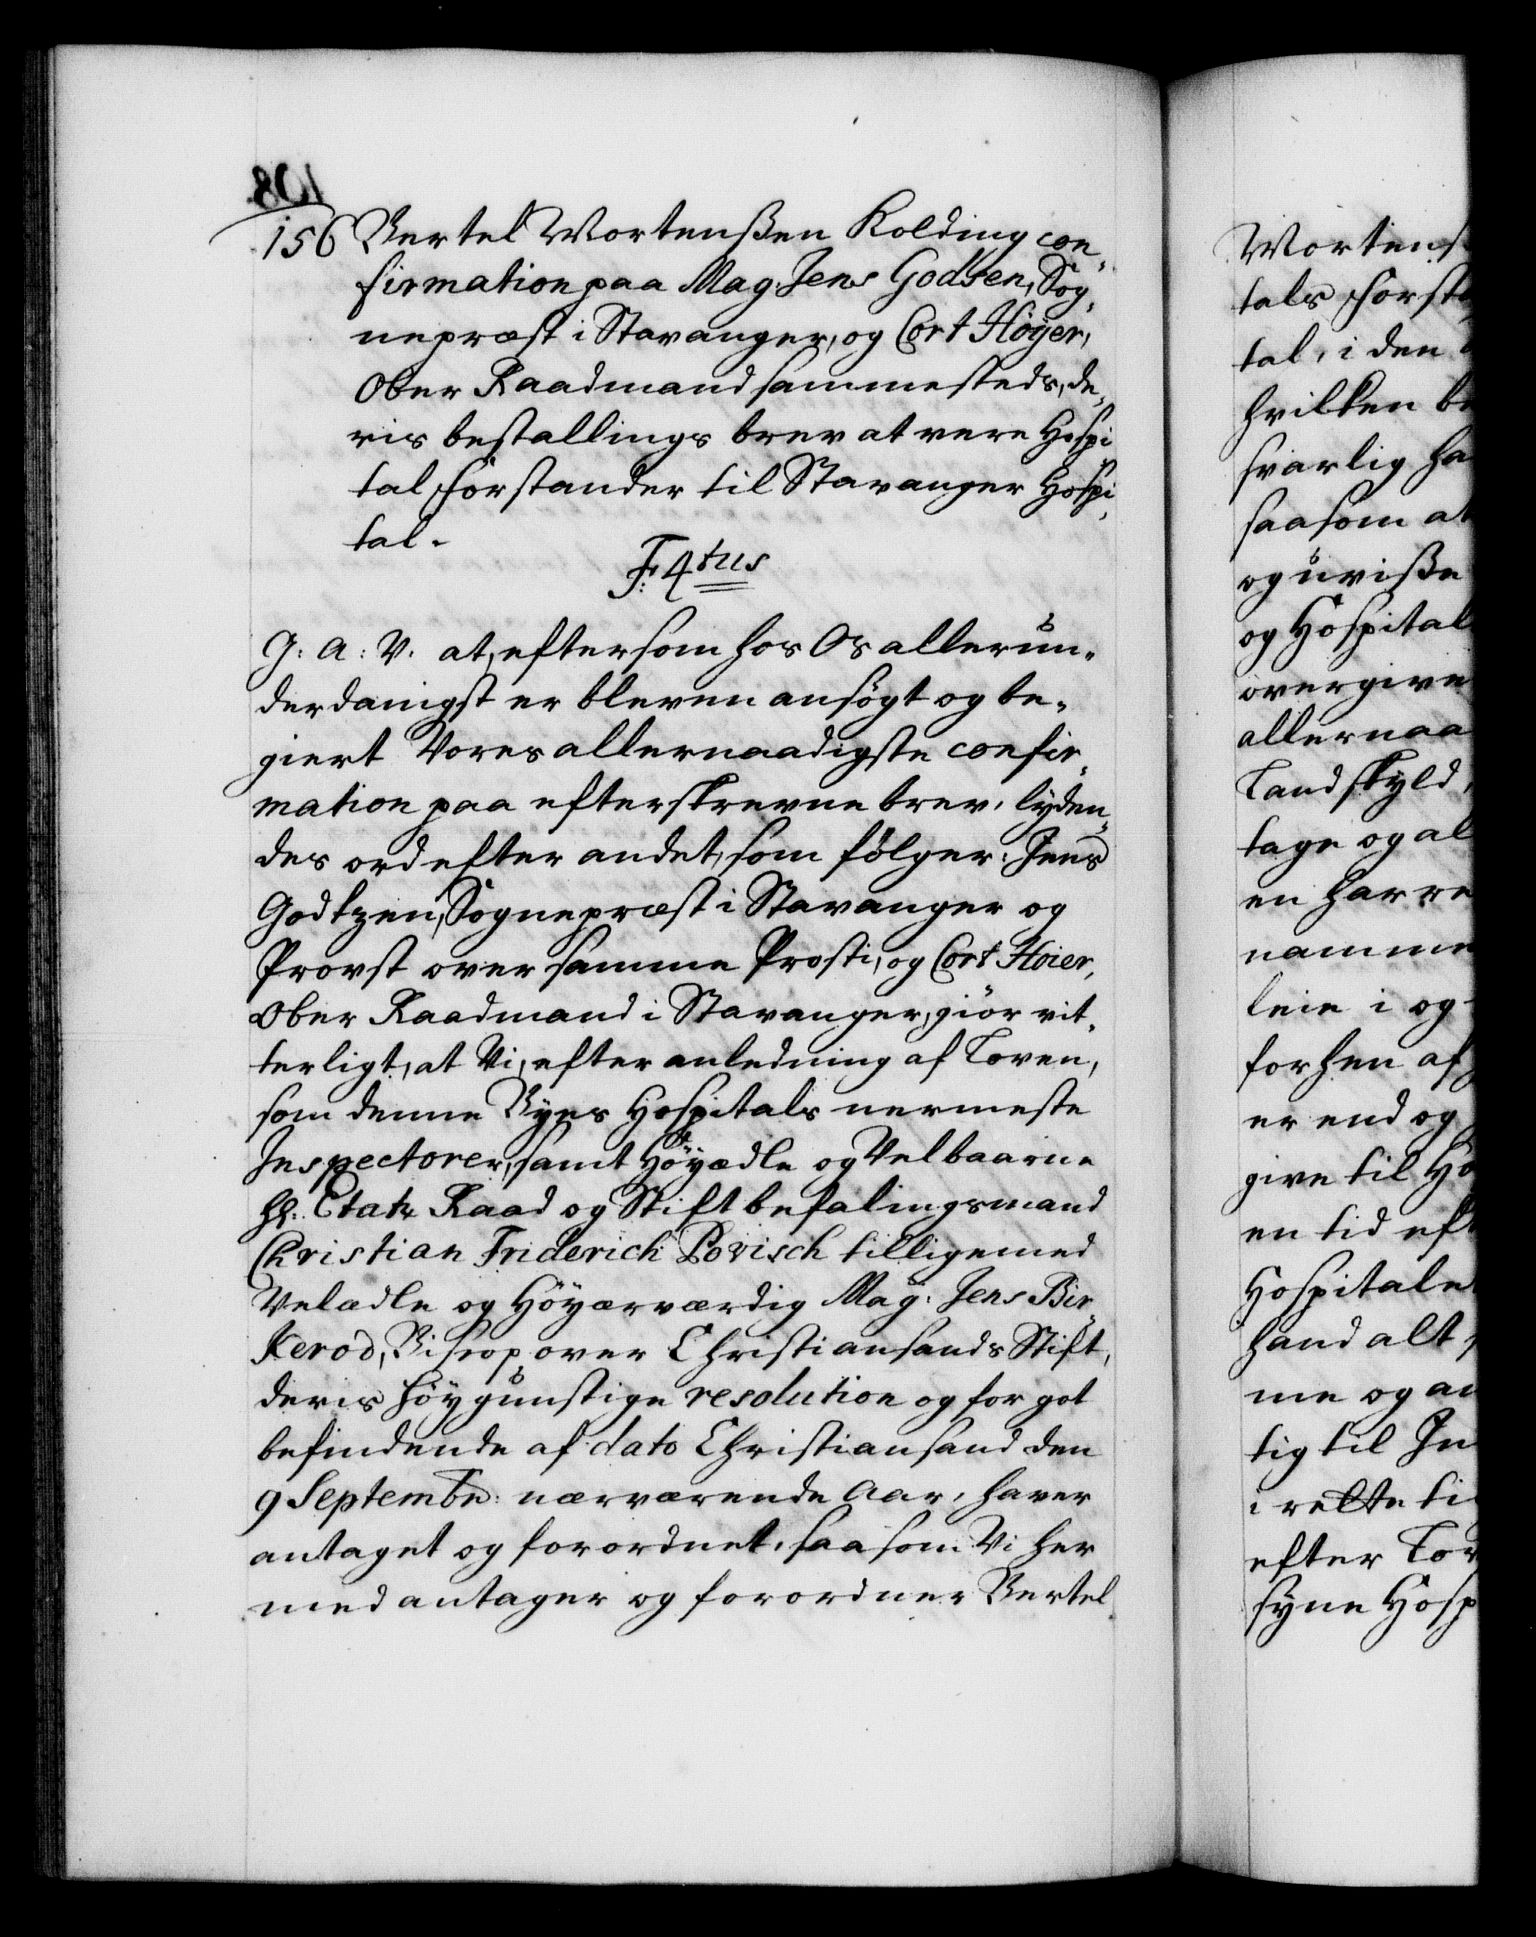 156 Bertel Mortenßen Kolding con„
firmation paa Mag. Jens Godsen, Sog„
nepræst i Stavanger, og Cort Höyer,
Ober Raadmand sammesteds, de„
ris bestallings brev at vere Hospi„
tal forstander til Stavanger Hospi„
tal.
F. 4tus
G: A: V. at, eftersom hos Os allerun„
derdanigst er bleven ansögt og be„
giert Vores allernaadigste confir„
mation paa efterskrevne brev, lyden„
des ord efter andet, som fölger: Jens
Godtzen, Sognepræst i Stavanger og
Provst over samme Prosti, og Cort Höier,
Ober Raadmand i Stavanger, giör vit„
terligt, at Vi, efter anledning af Loven,
som denne Byes Hospitals nermeste
Inspectorer, samt Höyædle og Velbaarne
Hr. Etats Raad og Stiftbefalingsmand
Christian Friderich Povisch tilligemed
Velædle og Höyærværdig Mag: Jens Bir„
Kerod, Biscop over Christiansands Stift,
deris höygunstige resolution og for got
befindende af dato Christiansand den
9 Septembr: nærværende Aar, haver
antaget og forordnet, saasom Vi her
med antager og forordner Bertel
Mortens
tals forst
tal, i den
hvilken be
svarlig ha
saasom at
og uviße
og Hospital
overgive
allernaa
Landskyld,
tage og al
en har re
namme
leie i og
forhen af
er end og
give til Ho
en tid eft
Hospitale
hand alt
me og an
tig til In
i rette ti
efter Lov
syne Hosp